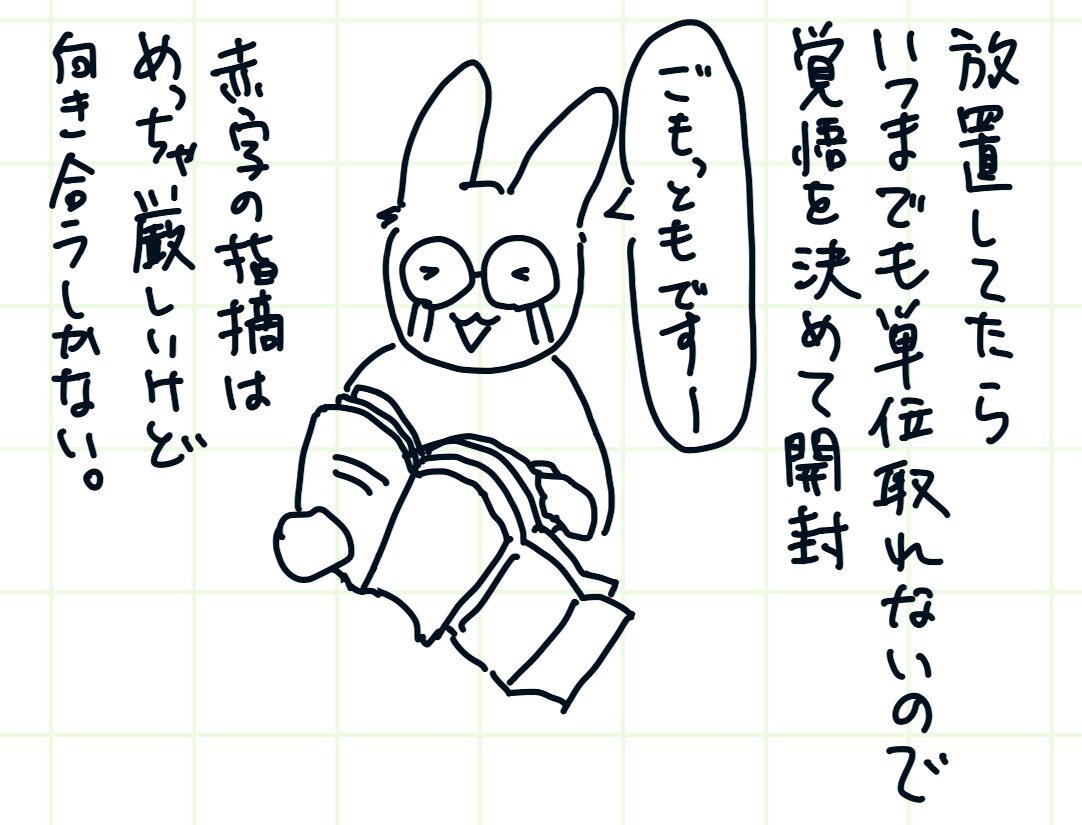 放置してたら
いつまでも単位取れないので
覚悟を決めて開封
ごもっともですー
赤字の指摘は
めっちゃ厳しいけど
向き合うしかない。